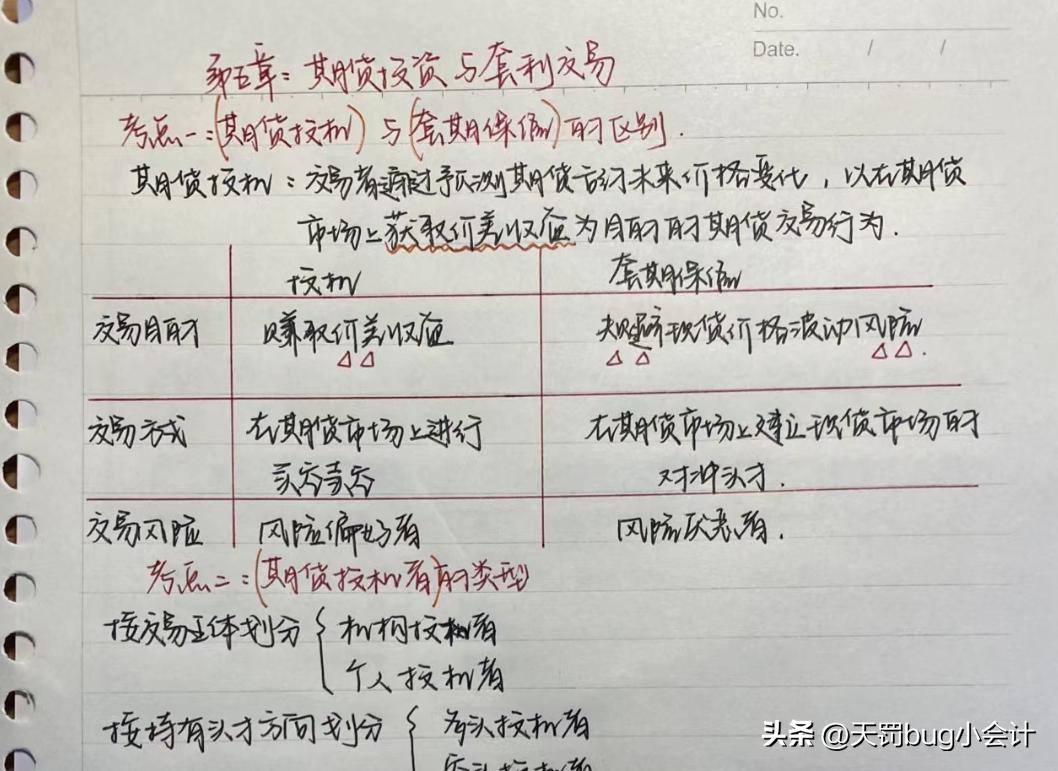 No.
Date. / /
第五章：期货投资与套利交易
考点一：（期货投机）与（套期保值）的区别.
期货投机：交易者通过预测期货合约未来价格变化，以在期货
市场上获取价差收益为目的的期货交易行为.
投机 套期保值
交易目的 赚取价差收益 规避现货价格波动风险.
交易方式 在期货市场上进行 在期货市场上建立现货市场的
买空卖空 对冲头寸.
交易风险 风险偏好者 风险厌恶者.
考点二：（期货投机者）的类型
按交易主体划分 { 机构投机者
个人投机者
按持有头寸方向划分 { 多头投机者
空头投机者
头条 @天罚bug小会计